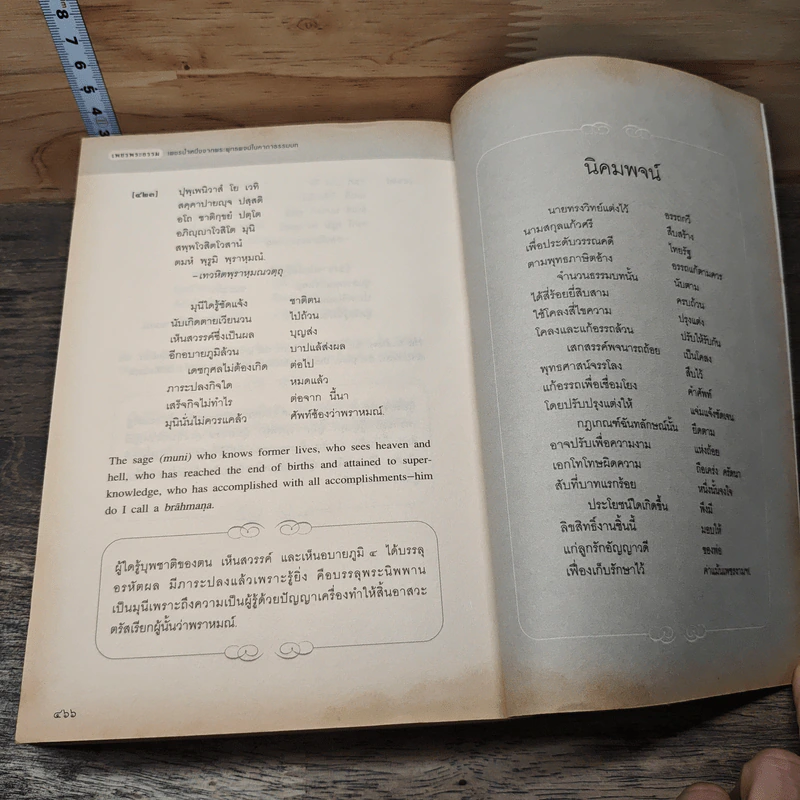 8
7
6
5
4
3
เพชรพระธรรม เพชรน้ำหนึ่งจากพระพุทธพจน์ในคาถาธรรมบท
[๔๒๓] ปุพฺเพนิวาสํ โย เวทิ
สคฺคาปายญฺจ ปสฺสติ
อโถ ชาติกฺขยํ ปตฺโต
อภิญฺญาโวสิโต มุนิ
สพฺพโวสิตโวสานํ
ตมหํ พฺรูมิ พฺราหฺมณํ.
–เทวหิตพฺราหฺมณวตฺถุ
มุนีใดรู้ชัดแจ้ง ชาติตน
นับเกิดตายเวียนวน ไปถ้วน
เห็นสวรรค์ซึ่งเป็นผล บุญส่ง
อีกอบายภูมิล้วน บาปแล้ส่งผล
เดชกุศลไม่ต้องเกิด ต่อไป
ภาระปลงกิจใด หมดแล้ว
เสร็จกิจไม่ทำไร ต่อจาก นี้นา
มุนีนั่นไม่ควรแคล้ว ศัพท์ซ้องว่าพราหมณ์.
The sage (muni) who knows former lives, who sees heaven and
hell, who has reached the end of births and attained to super-
knowledge, who has accomplished with all accomplishments—him
do I call a brāhmaṇa.
ผู้ใดรู้บุพชาติของตน เห็นสวรรค์ และเห็นอบายภูมิ ๔ ได้บรรลุ
อรหัตผล มีภาระปลงแล้วเพราะรู้ยิ่ง คือบรรลุพระนิพพาน
เป็นมุนีเพราะถึงความเป็นผู้รู้ด้วยปัญญาเครื่องทำให้สิ้นอาสวะ
ตรัสเรียกผู้นั้นว่าพราหมณ์.
๔๖๖
นิคมพจน์
นายทรงวิทย์แต่งไว้ อรรถกวี
นามสกุลแก้วศรี สืบสร้าง
เพื่อประดับวรรณคดี ไทยรัฐ
ตามพุทธภาษิตอ้าง อรรถแก้ตามควร
จำนวนธรรมบทนั้น นับตาม
ได้สี่ร้อยยี่สิบสาม ครบถ้วน
ใช้โคลงสี่ไขความ ปรุงแต่ง
โคลงและแก้อรรถล้วน ปรับให้รับกัน
เสกสรรค์พจนารถถ้อย เป็นโคลง
พุทธศาสน์จรรโลง สืบไว้
แก้อรรถเพื่อเชื่อมโยง คำศัพท์
โดยปรับปรุงแต่งให้ แจ่มแจ้งชัดเจน
กฎเกณฑ์ฉันทลักษณ์นั้น ยึดตาม
อาจปรับเพื่อความงาม แห่งถ้อย
เอกโทโทษผิดความ ถือเคร่ง
สับที่บาทแรกร้อย หนึ่งนั้นจงใจ
ประโยชน์ใดเกิดขึ้น พึงมี
ลิขสิทธิ์งานชิ้นนี้ มอบให้
แก่ลูกรักอัญญาวดี ของพ่อ
เฟื่องเก็บรักษาไว้